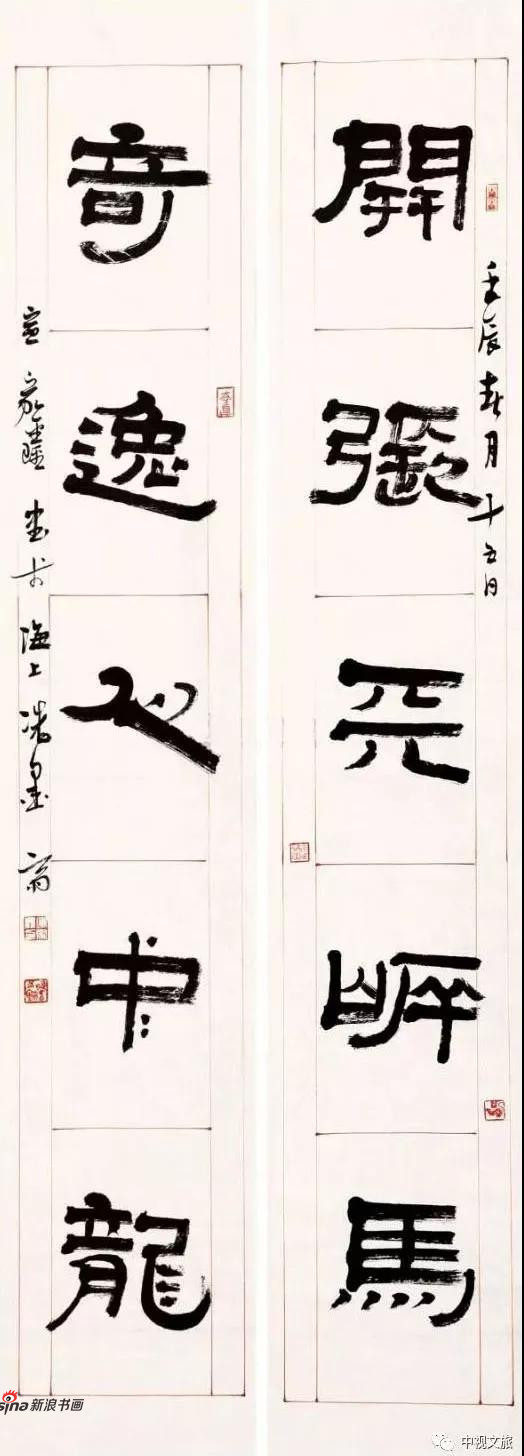 開張天岸馬
壬辰春月十五日
奇逸人中龍
宣家鑫書於海上洗墨齋
sina新浪书画
中视文旅